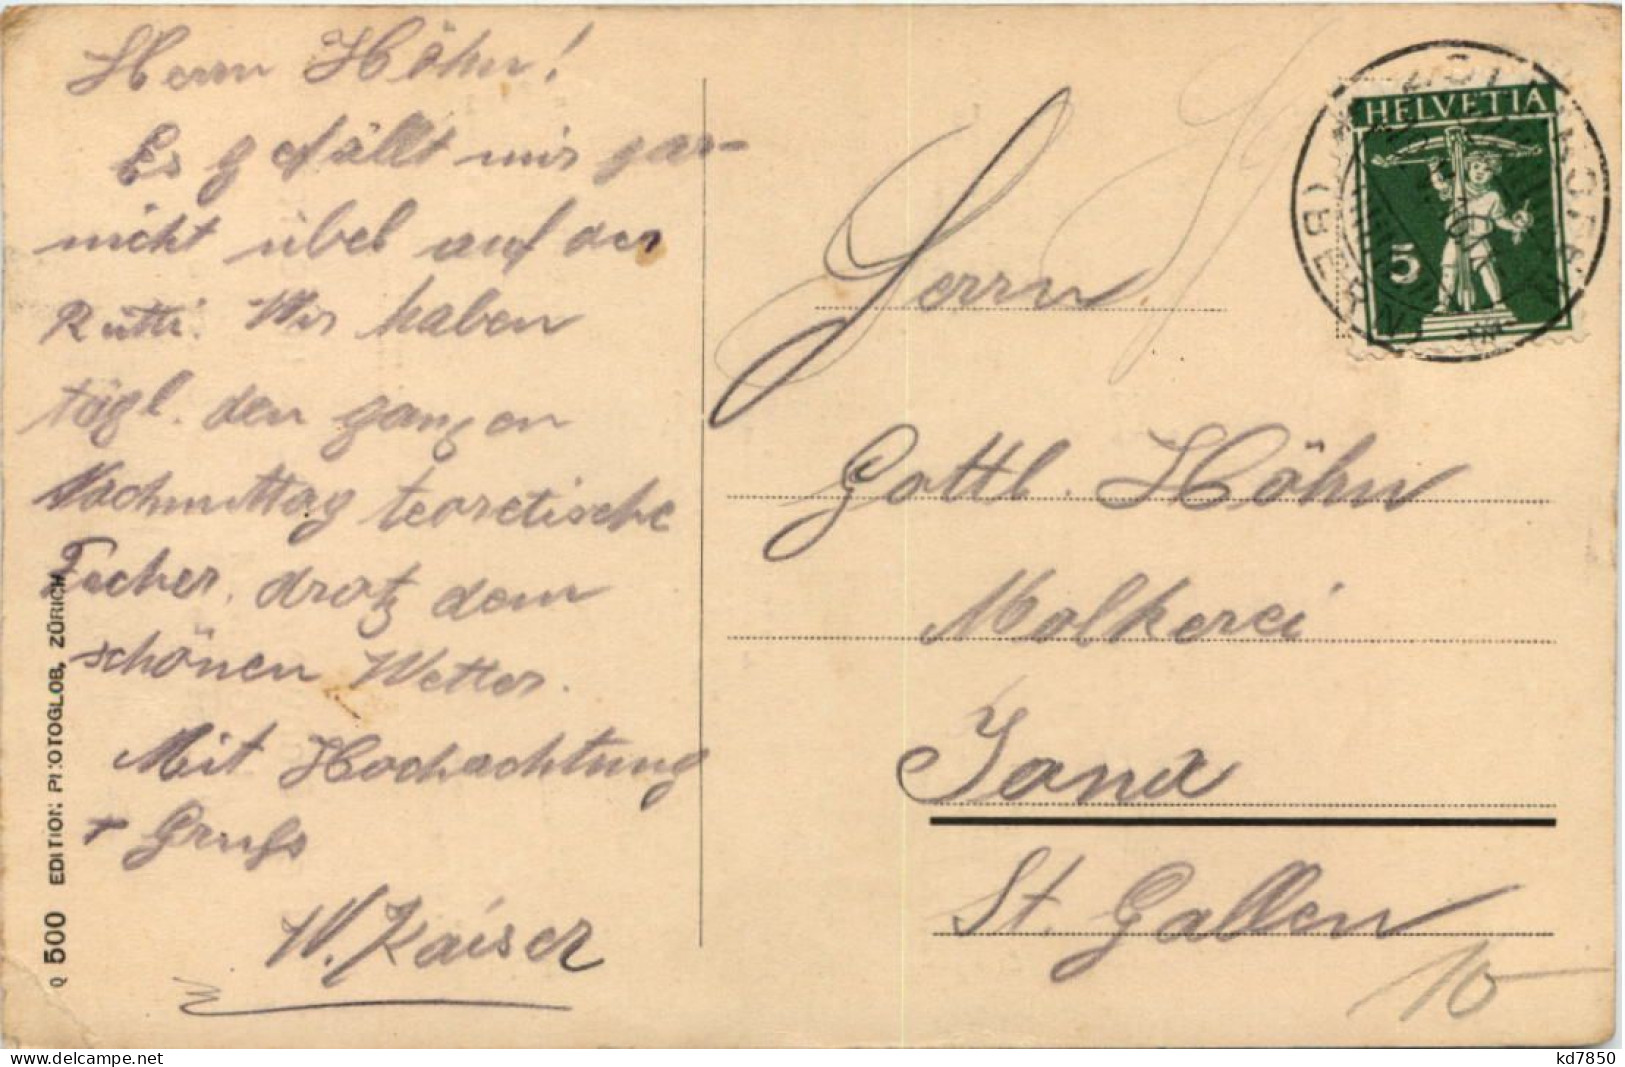 Herrn Höhn!
Es gefällt mir gar-
nicht übel auf der
Rütti. Wir haben
tägl. den ganzen
Nachmittag teoretische
Fächer, drotz dem
schönen Wetter.
Mit Hochachtung
+ Gruss
W. Kaiser
Q 500 EDITION PHOTOGLOB, ZÜRICH
HELVETIA
5
ZOLLIKOFEN
(BERN)
Herrn
Gottl. Höhn
Molkerei
Jona
St. Gallen
10
kd7850